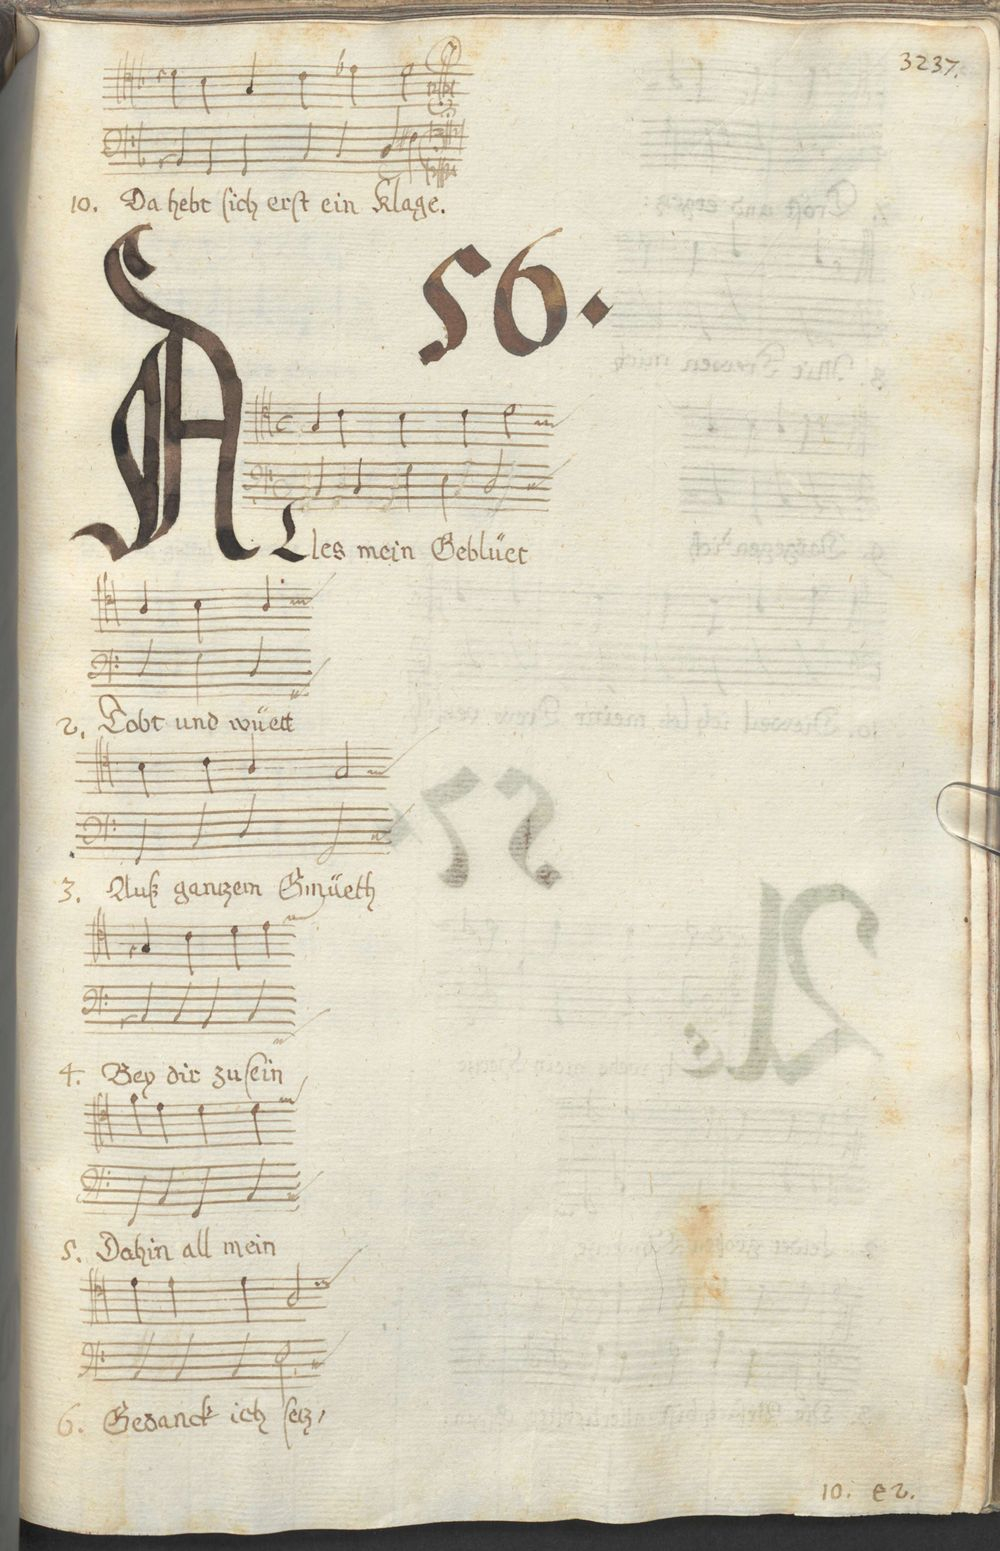 3237.
10. Da hebt sich erst ein Klage.
56.
ALles mein Geblüet
2. Tobt und wüett
3. Auß ganzem Gmüeth
4. Bey dir zu sein
5. Dahin all mein
6. Gedanck ich setz,
10. e2.